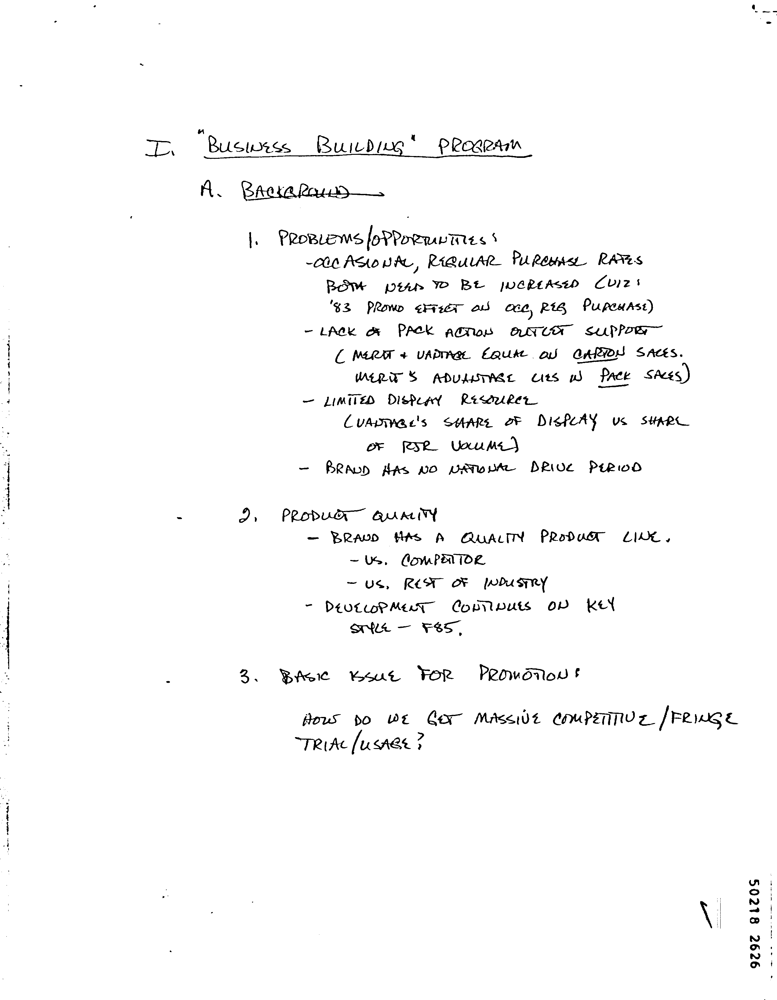 I. "BUSINESS BUILDING" PROGRAM
A. BACKGROUND
1. PROBLEMS/OPPORTUNITIES:
-OCCASIONAL, REGULAR PURCHASE RATES
BOTH NEED TO BE INCREASED (VIZ:
'83 PROMO EFFECT ON OCC, REG PURCHASE)
- LACK OF PACK ACTION OUTLET SUPPORT
(MERIT + VANTAGE EQUAL ON CARTON SALES.
MERIT'S ADVANTAGE LIES IN PACK SALES)
- LIMITED DISPLAY RESOURCE
(VANTAGE'S SHARE OF DISPLAY VS SHARE
OF RJR VOLUME)
- BRAND HAS NO NATIONAL DRIVE PERIOD
2. PRODUCT QUALITY
- BRAND HAS A QUALITY PRODUCT LINE.
- VS. COMPETITOR
- VS. REST OF INDUSTRY
- DEVELOPMENT CONTINUES ON KEY
STYLE - F85.
3. BASIC ISSUE FOR PROMOTION:
HOW DO WE GET MASSIVE COMPETITIVE/FRINGE
TRIAL/USAGE?
50218 2626